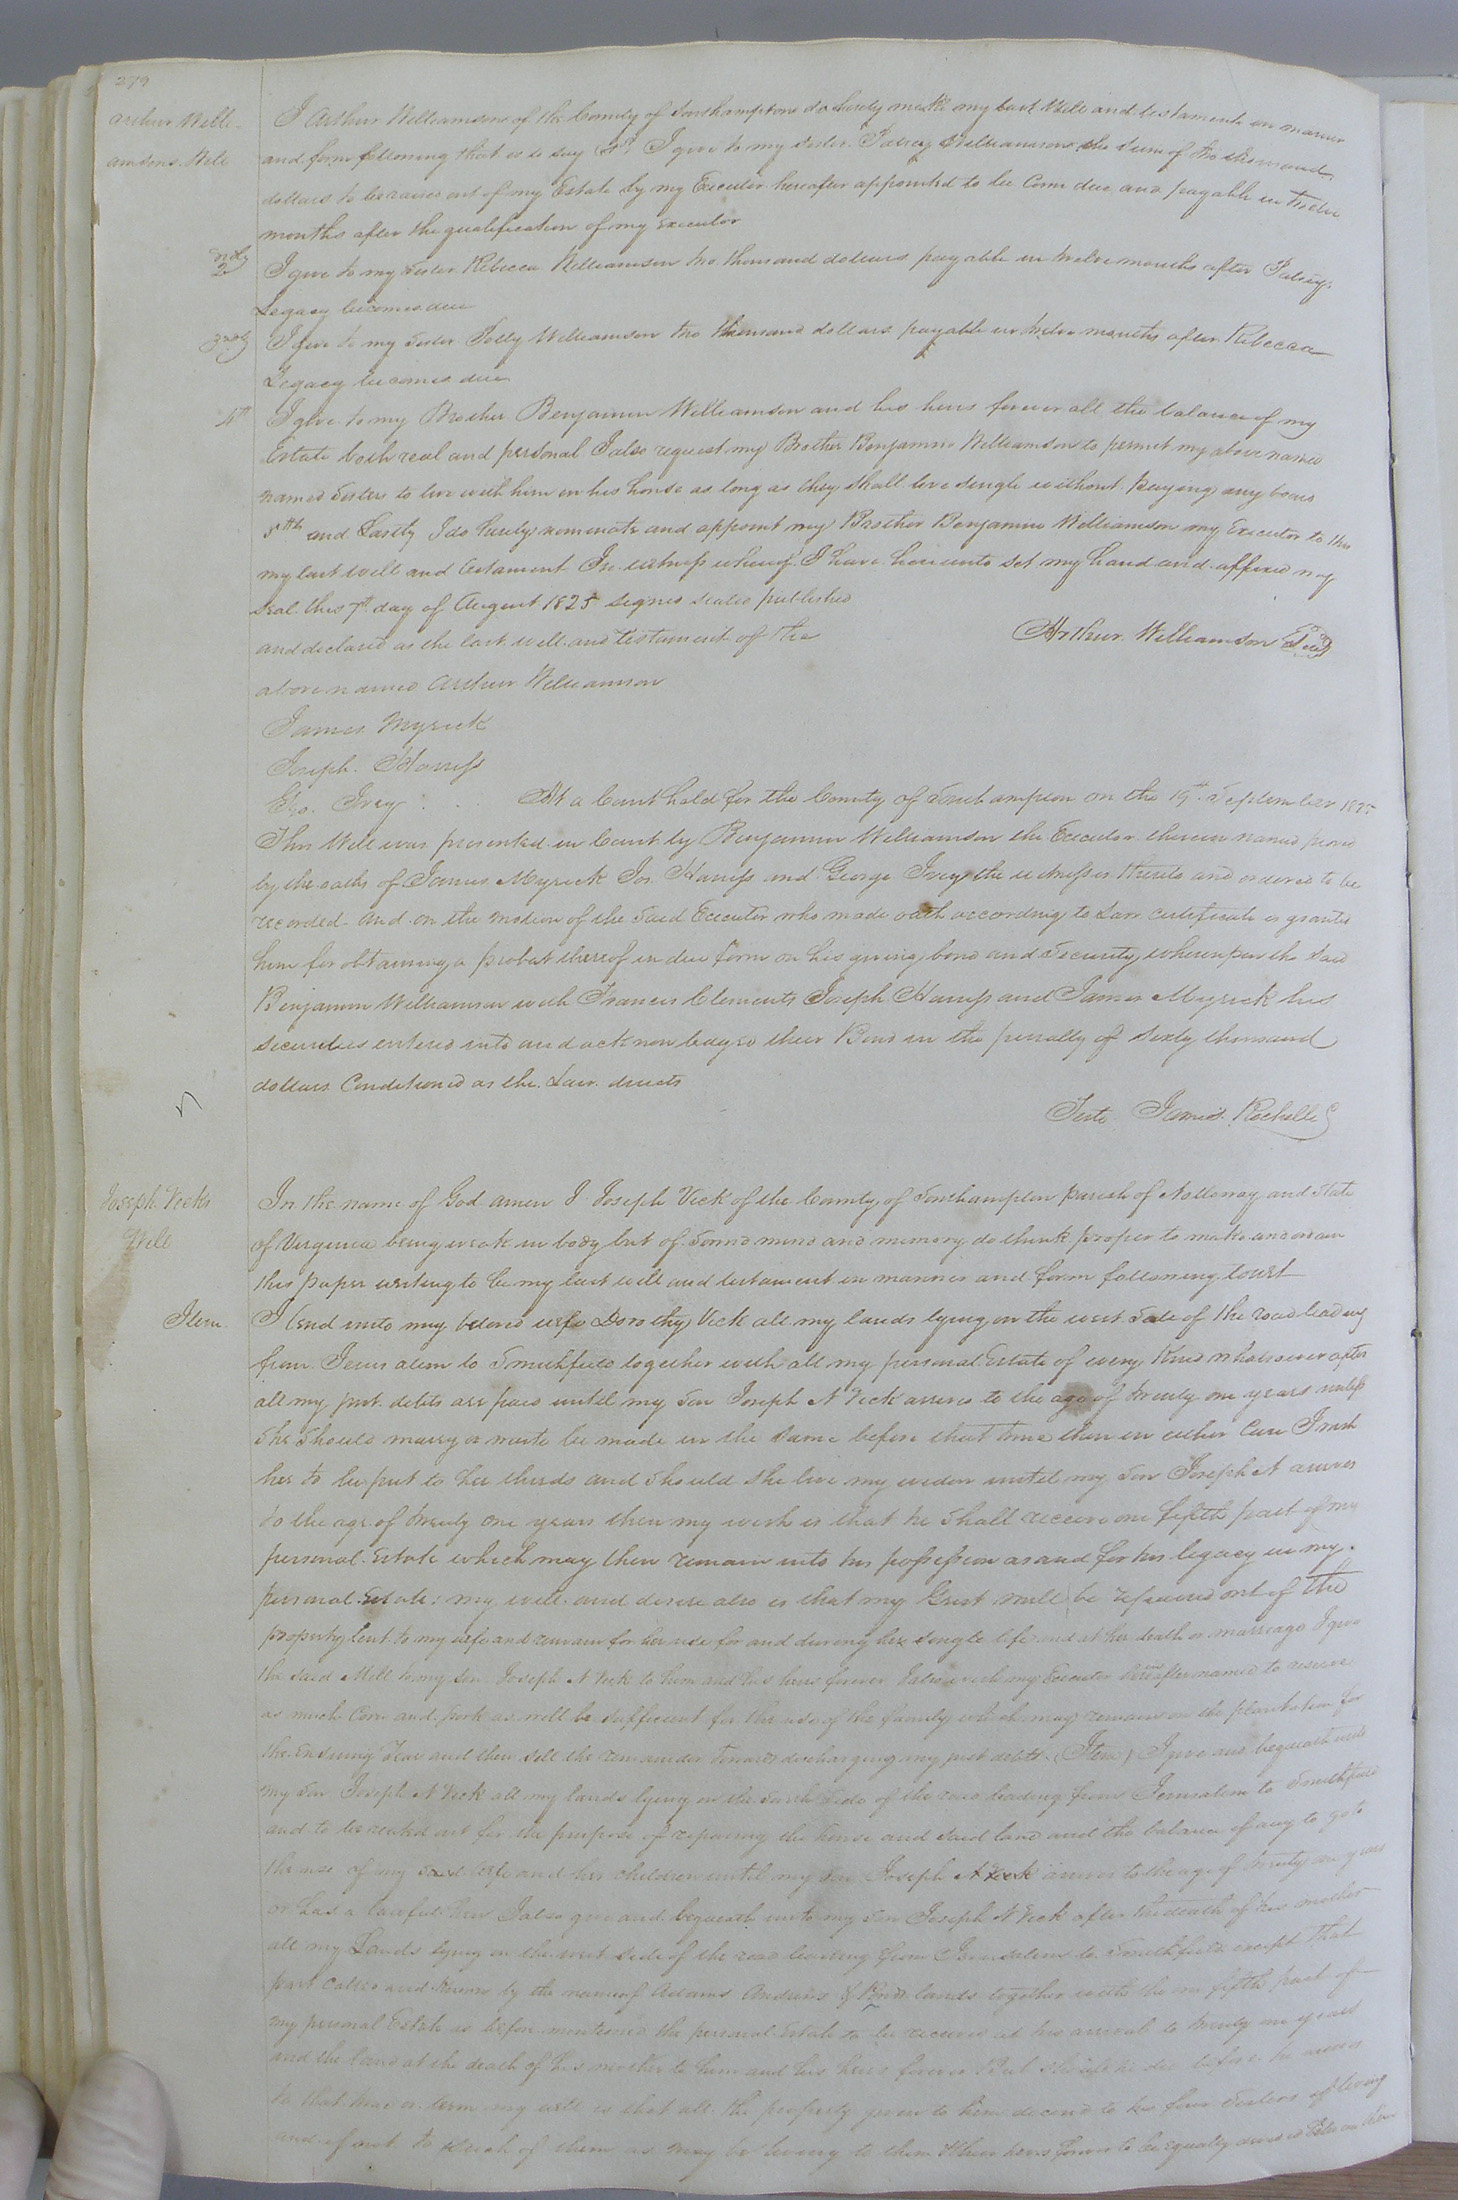 279
Arthur Willi-
amsons Will
I Arthur Williamson of the County of Southampton do hereby make my last Will and testament in manner
and form following that is to say 1st. I give to my sister Patsey Williamson the sum of two thousand
dollars to be raised out of my Estate by my Executor hereafter appointed to be Come due and payable in twelve
months after the qualification of my Executor
2ndly
I give to my sister Rebecca Williamson two thousand dollars payable in twelve months after Patsey's
Legacy becomes due
3rdly
I give to my sister Polly Williamson two thousand dollars payable in twelve months after Rebecca
Legacy becomes due
4th
I give to my Brother Benjamin Williamson and his heirs forever all the balance of my
Estate both real and personal I also request my Brother Benjamin Williamson to permit my above named
named Sisters to live with him in his house as long as they shall live single without paying any board
5th and Lastly I do hereby nominate and appoint my Brother Benjamin Williamson my Executor to this
my last will and testament In witness whereof I have hereunto set my hand and affixed my
seal this 7th day of August 1825 signed sealed published
and declared as the last will and testament of the
Arthur Williamson Seal
above named Arthur Williamson
James Myrick
Joseph Harriss
Geo. Ivey
At a Court held for the County of Southampton on the 19th September 1825
This Will was presented in Court by Benjamin Williamson the Executor therein named proved
by the oaths of James Myrick Jos. Harriss and George Ivey the witnesses thereto and ordered to be
recorded and on the motion of the said Executor who made oath according to Law certificate is granted
him for obtaining a probat thereof in due form on his giving bond and Security whereupon the said
Benjamin Williamson with Francis Clements Joseph Harriss and James Myrick his
securities entered into and acknowledged their Bond in the penalty of sixty thousand
dollars Conditioned as the Law directs
Teste James Rochelle
Joseph Vicks
Will
In the name of God amen I Joseph Vick of the County of Southampton parish of Nottoway and State
of Virginia being weak in body but of sound mind and memory do think proper to make and ordain
this paper writing to be my last will and testament in manner and form following towit
Item
I lend unto my beloved wife Dorothy Vick all my lands lying on the west side of the road leading
from Jerusalem to Smithfield together with all my personal Estate of every kind whatsoever after
all my just debts are paid until my son Joseph N Vick arrives to the age of twenty one years unless
she should marry or waste be made in the same before that time then in either case I wish
her to be put to her thirds and should she live my widow until my son Joseph N arrives
to the age of twenty one years then my wish is that he shall receive one fifth part of my
personal Estate which may then remain into his possession as and for his legacy in my
personal Estate: my will and desire also is that my Grist mill be repaired out of the
property lent to my wife and remain for her use for and during her single life and at her death or marriage I give
the said Mill to my son Joseph N Vick to him and his heirs forever I also wish my Executor hereinafter named to reserve
as much Corn and pork as will be sufficient for the use of the family which may remain on the plantation for
the ensuing Year and then sell the remainder towards discharging my just debts. (Item) I give and bequeath unto
my son Joseph N Vick all my lands lying on the South side of the road leading from Jerusalem to Smithfield
and to be rented out for the purpose of repairing the house and said land and the balance if any to go to
the use of my said wife and her children until my son Joseph N Vick arrives to the age of twenty one years
or has a lawful heir I also give and bequeath unto my son Joseph N Vick after the death of his mother
all my Lands lying on the west side of the road leading from Jerusalem to Smithfield except that
part called and known by the name of Adams Andrews & lands together with the one fifth part of
my personal Estate as before mentioned the personal Estate to be received at his arrival to twenty one years
and the land at the death of his mother to him and his heirs forever But should he die before he arrives
to that time or term my will is that all the property given to him descend to his four Sisters if living
and if not to such of them as may be living to them & their heirs forever to be equally divided